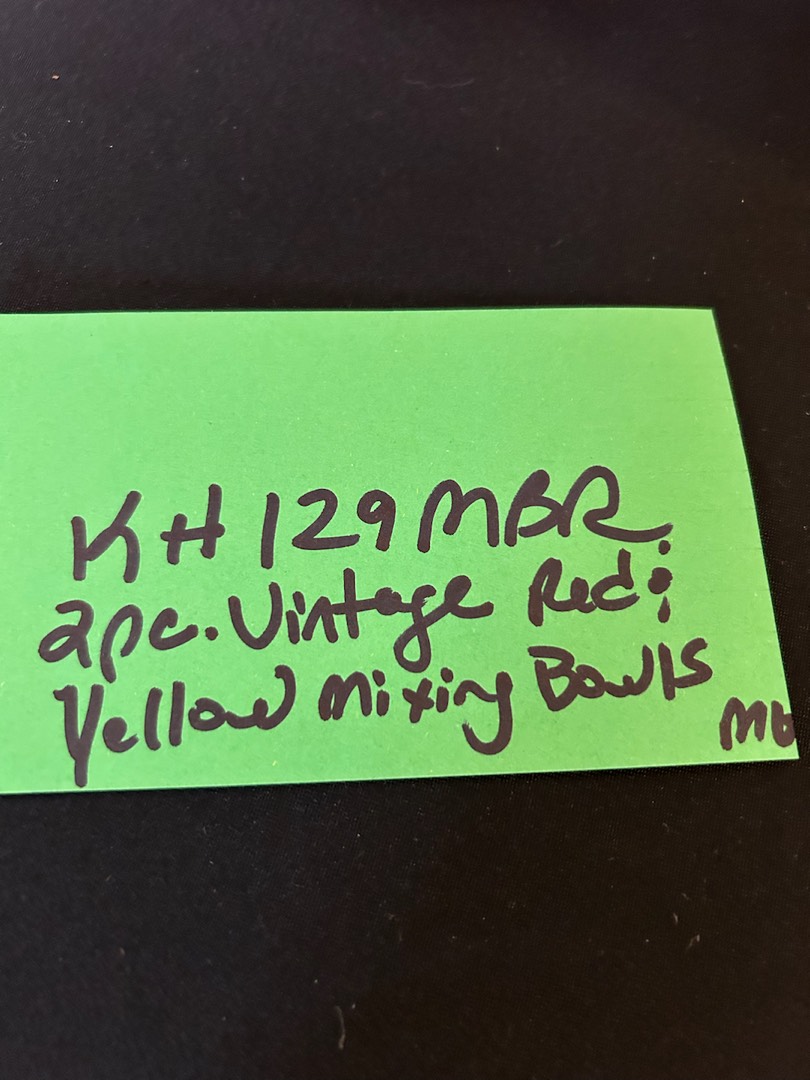 KH129MBR
2pc. Vintage Red &
Yellow Mixing Bowls
MB